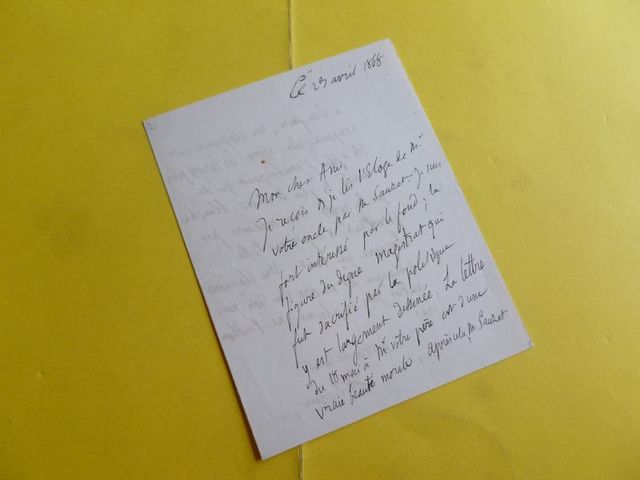 Ce 23 avril 1868
Mon cher Ami,
Je reçois & je lis l'Eloge de Mr
votre oncle par M. Sauzet. Je suis
fort intéressé par le fond ; la
figure du digne magistrat qui
fut sacrifié par la politique
y est largement dessinée. La lettre
du 18 mai à Mr votre père est d'une
vraie beauté morale. Après cela, M. Sauzet